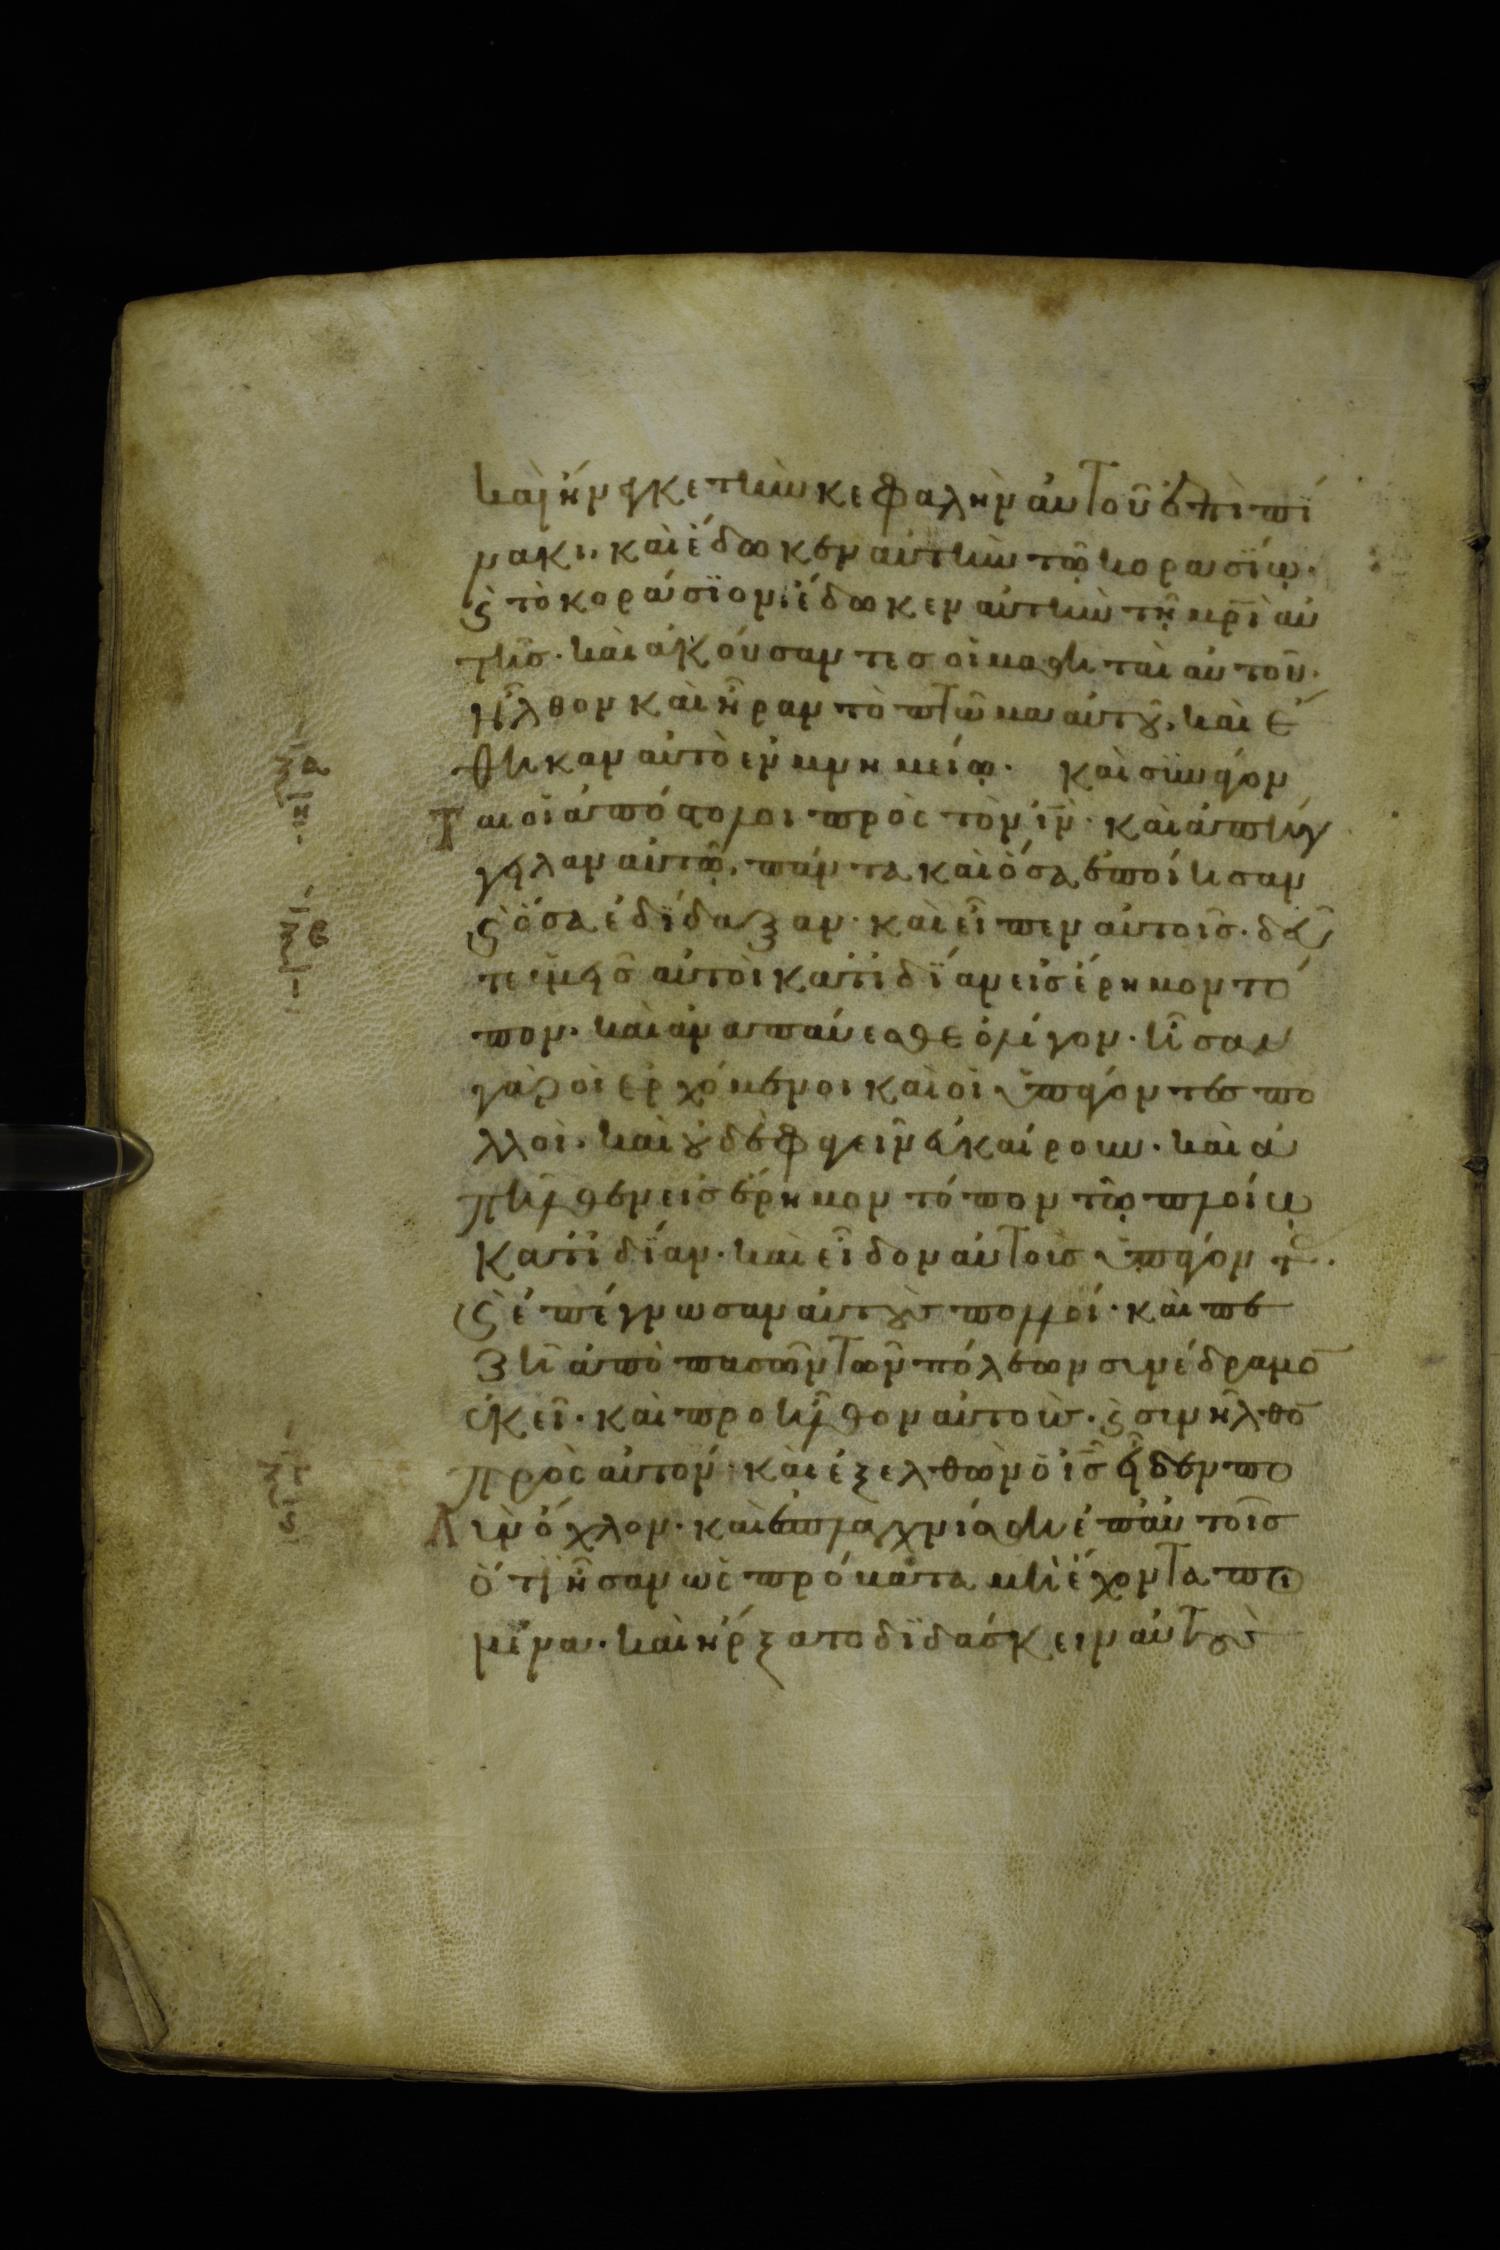 καὶ ἤνεγκε τὴν κεφαλὴν αὐτοῦ ἐπὶ πί
νακι, καὶ ἔδωκεν αὐτὴν τῷ κορασίῳ.
ϛ τὸ κοράσϊον ἔδωκεν αὐτὴν τῇ μρ̅ὶ αὐ
τῆσ. καὶ ἀκούσαντεσ οἱ μαθηταὶ αὐτοῦ.
ἦλθον καὶ ἦραν τὸ πτῶμα αὐτοῦ, καὶ ἔ
θηκαν αὐτὸ ἐν μνημείῳ. καὶ συνάγον
ται οἱ ἀπόστολοι πρὸς τὸν ι̅ν̅. καὶ ἀπήγ
γειλαν αὐτῷ, πάντα καὶ ὅσα ἐποίησαν
ϛ ὅσα ἐδίδαξαν. καὶ εἶπεν αὐτοῖσ. δεῦ
τε ὑμεῖσ αὐτοὶ κατιδΐαν εἰσ ἔρημον τό
πον. καὶ ἀναπαύεσθε ὀλίγον. ἦσαν
γὰρ οἱ ἐρχόμενοι καὶ οἱ ὑπάγοντεσ πο
λλοὶ. καὶ οὐδὲ φαγεῖν εὐκαίρουν. καὶ ἀ
πῆλθεν εἰσ ἔρημον τόπον τῷ πλοίω
κατιδΐαν. καὶ εἶδον αὐτοὶσ ὑπάγοντ.
ϛ ἐπέγνωσαν αὐτοὺσ πολλοί. καὶ πε
ζῆ ἀπὸ πασῶν τῶν πόλεων συνέδραμο̅
ἐκεῖ. καὶ προῆλθον αὐτοὺσ. ϛ συνῆλθο̅
πρὸς αὐτον. καὶ ἐξελθὼν ὁ ι̅σ̅ εἶδεν πο
λὺν ὄχλον. καὶ ἐσπλαχνίσθη ἐπ αὐτοῖσ
ὅτι ἦσαν ὡς πρόβατα μὴ ἔχοντα ποι
μένα. καὶ ἤρξατο διδάσκειν αὐτοὺσ